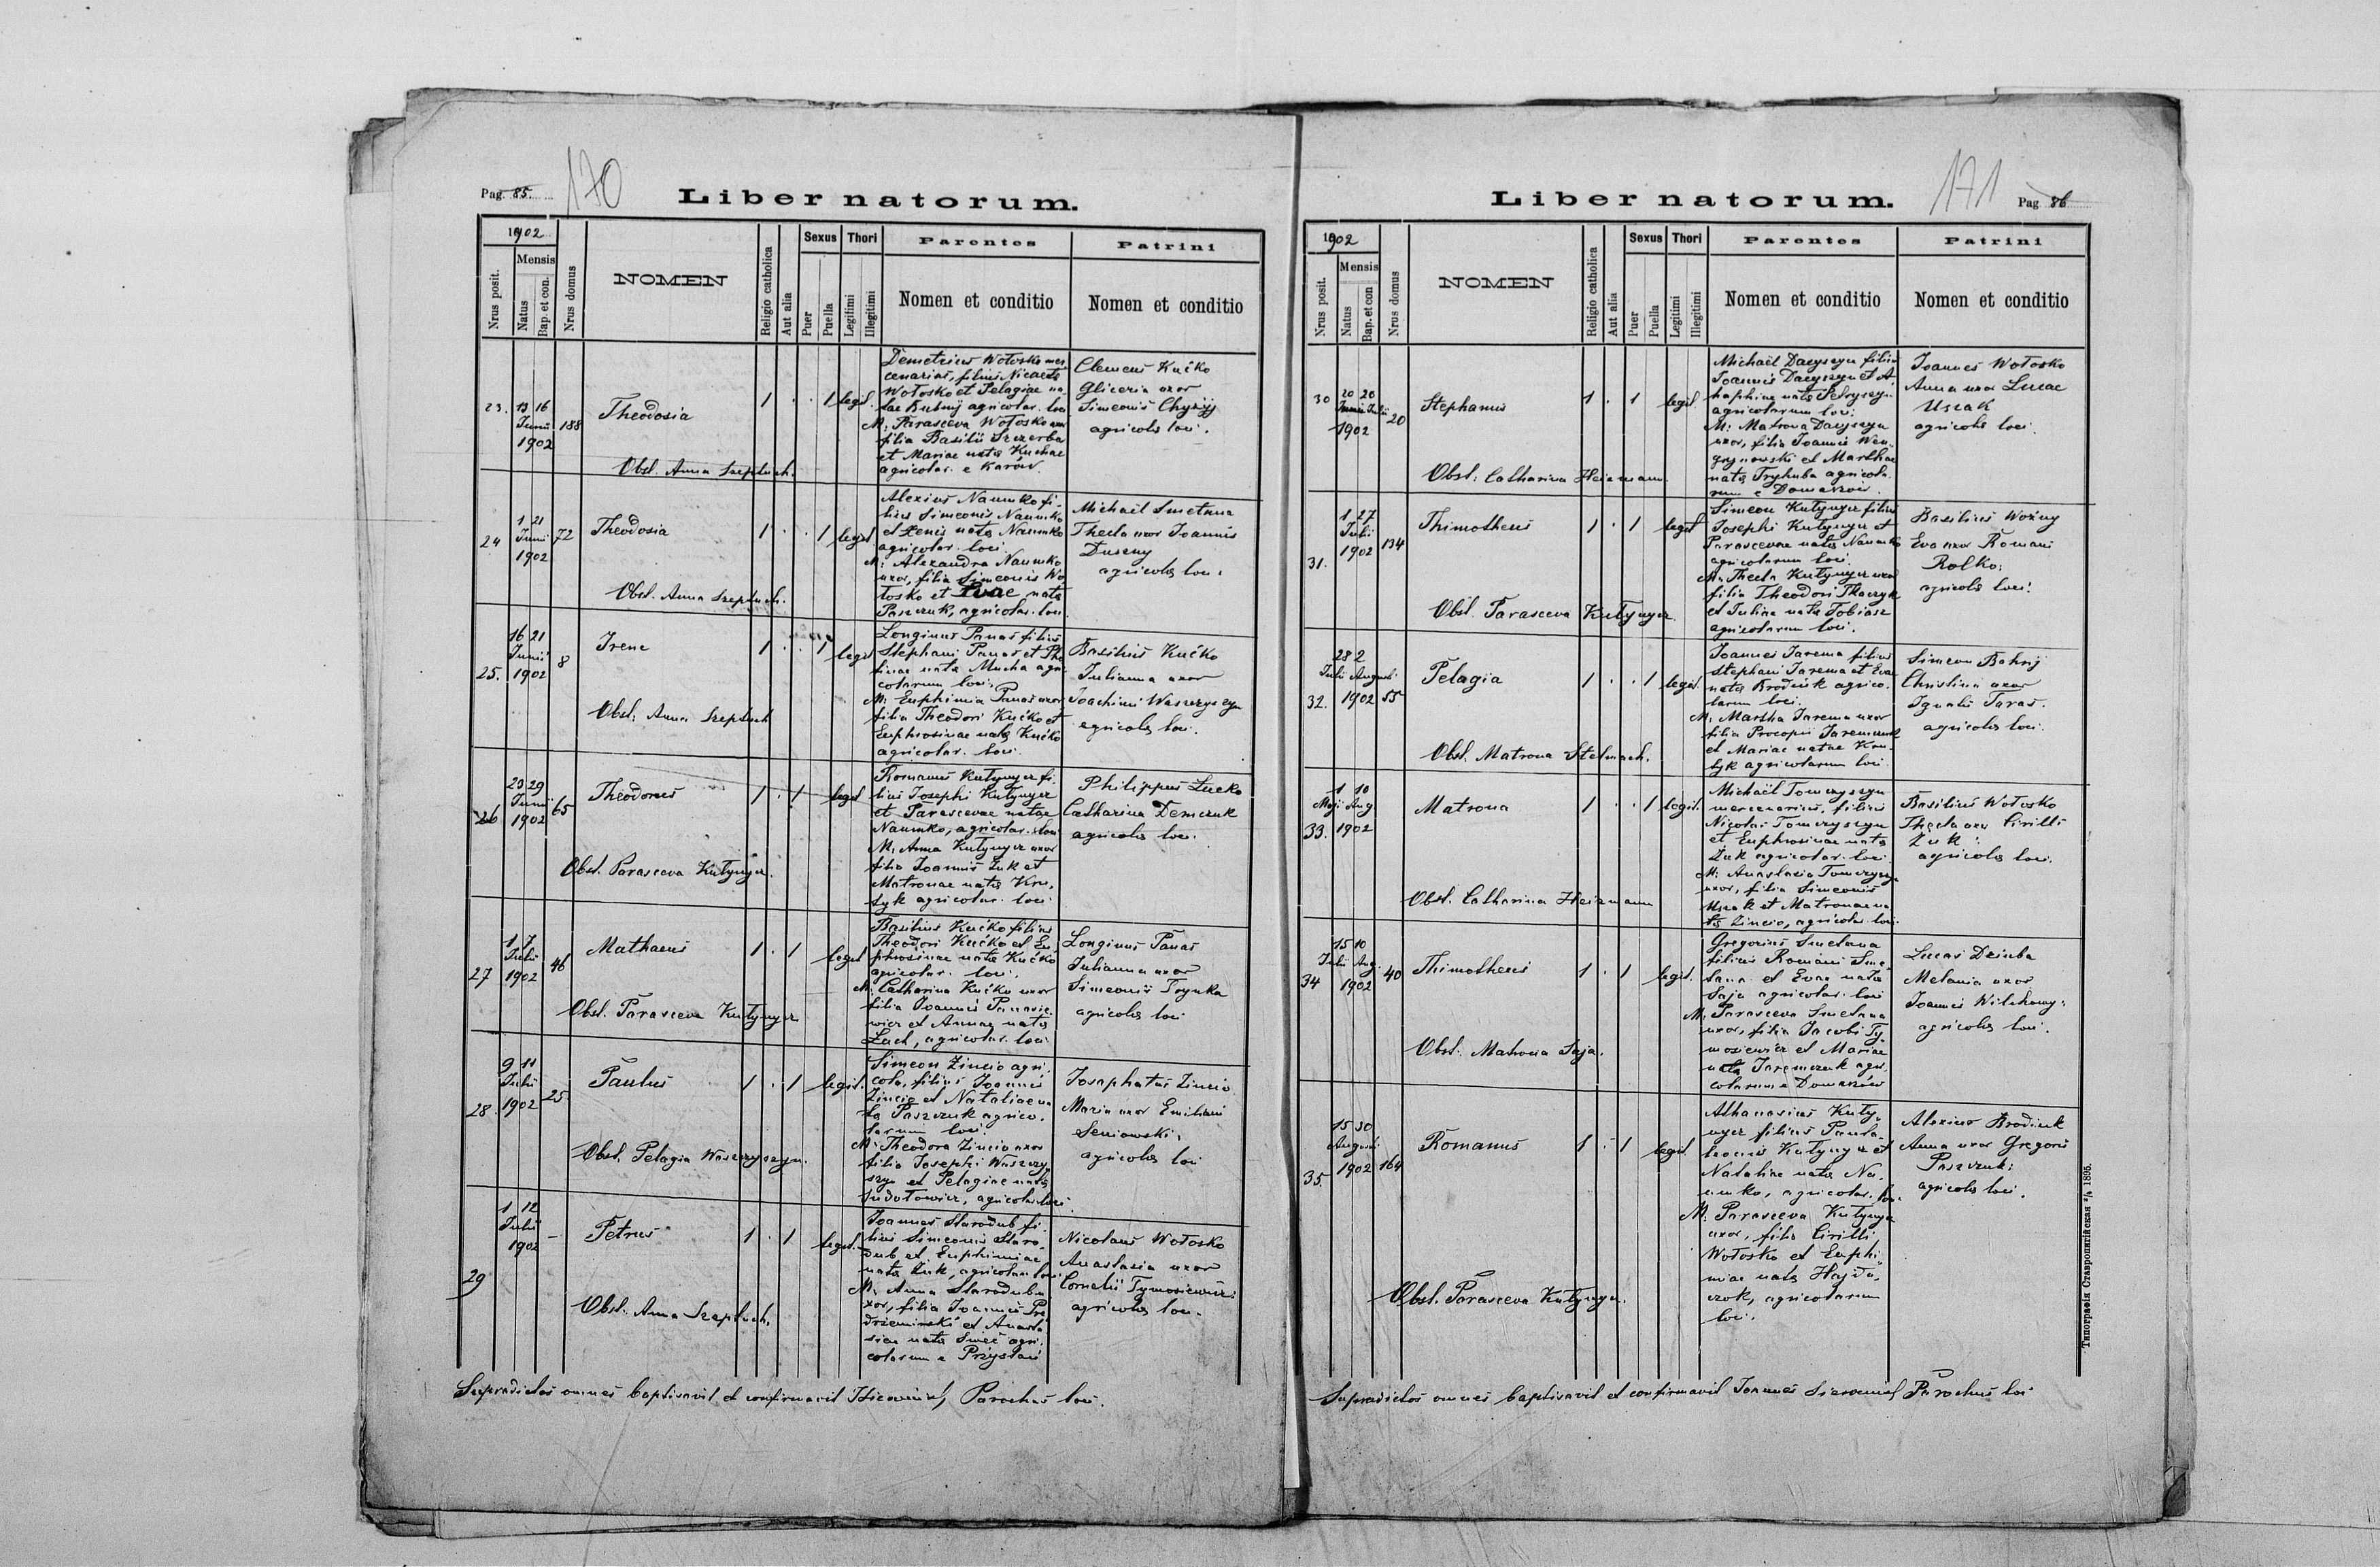 Pag. 85.
170
Liber natorum.
1902
Mensis
Nrus posit.
Natus
Bap. et con.
Nrus domus
NOMEN
Religio catholica
Aut alia
Sexus
Puer
Puella
Thori
Legitimi
Illegitimi
Parentes
Nomen et conditio
Patrini
Nomen et conditio
23.
13 16
Junii
1902
188
Theodosia
1 . . 1 legit.
Obst. Anna Szeptuch.
Demetrius Wołosko mer
cenarius, filius Nicaetae
Wołosko et Pelagiae na
tae Butnij agricolar. loci
M: Parasceva Wołosko uxor
filia Basilii Szczerba
et Mariae natae Kuchar
agricolar. e Karów.
Clemens Kućko
Gliceria uxor
Simeonis Chyżyj
agricolae loci.
24
1 21
Junii
1902
72
Theodosia
1 . . 1 legit
Obst. Anna Szeptuch.
Alexius Naumko fi-
lius Simeonis Naumko
et Xenis natae Naumko
agricolar. loci.
M: Alexandra Naumko
uxor, filia Simeonis Wo
łosko et Evae natae
Paszczuk, agricolar. loci
Michaël Smetana
Thecla uxor Joannis
Duszny
agricolae loci.
25.
16 21
Junii
1902
8
Irene
1 . . 1 legit
Obst: Anna Szeptuch
Longinus Panas filius
Stephani Panas et
natae Mucha agri
colarum loci.
M: Euphimia Panas uxor
filia Theodori Kućko et
Euphrosinae natae Kućko
agricolar. loci.
Basilius Kućko
Julianna uxor
Joachimi Waszczyszyn
agricolae loci.
26
23 29
Junii
1902
65
Theodorus
1 . 1 legit
Obst. Parasceva Kutynyer.
Romanus Kutynyer fi-
lius Josephi Kutynyer
et Parascevae natae
Naumko, agricolar. loci
M: Anna Kutynyer uxor
filia Joannis Żuk et
Matronae natae Kru-
tyk agricolar. loci
Philippus Łucko
Catharina Demczuk
agricolae loci.
27
1 7
Julii
1902
46
Mathaeus
1 . 1 legit
Obst. Parasceva Kutynyer
Basilius Kućko filius
Theodori Kućko et Eu
phrosinae natae Kućko
agricolar. loci.
M: Catharina Kućko uxor
filia Joannis Panasie
wicz et Annae natae
Lach, agricolar. loci
Longinus Panas
Julianna uxor
Simeonis Trynka
agricolae loci
28
9 11
Julii
1902
25
Paulus
1 . 1 legit.
Obst. Pelagia Waszczyszyn.
Simeon Zincio agri-
cola, filius Joannis
Zincio et Nataliae na
tae Paszczuk agrico-
larum loci.
M: Theodora Zincio uxor
filia Josephi Waszczy
szyn et Pelagiae natae
Sudotowicz, agricolar. loci.
Josaphatus Zincio
Maria uxor Emiliani
Seniowski,
agricolae loci
29
1 12
Julii
1902
–
Petrus
1 . 1 legit.
Obst: Anna Szeptuch.
Joannes Starodub fi-
lius Simeonis Staro-
dub et Euphimiae
natae Żuk, agricolar. loci
M: Anna Starodub u
xor, filia Joannis
et Anasta
siae natae agri-
colarum e Przystań
Nicolaus Wołosko
Anastasia uxor
Cornelii Tymosiewicz
agricolae loci.
Supradictos omnes baptisavit et confirmavit Parochus loci.
Liber natorum.
171
Pag 86
1902
Mensis
Nrus posit.
Natus
Bap. et con
Nrus domus
NOMEN
Religio catholica
Aut alia
Sexus
Puer
Puella
Thori
Legitimi
Illegitimi
Parentes
Nomen et conditio
Patrini
Nomen et conditio
30
20 20
Junii Julii
1902
20
Stephanus
1 . 1 legit.
Obst: Catharina Heizmann
Michaël Daczyszyn filius
Joannis Daczyszyn et A
haphiae natae Petryszyn
agricolarum loci.
M: Matrona Daczyszyn
uxor, filia Joannis Wen-
grynowski et Marthae
natae Tryhuba agricola-
rum e Domaszów.
Joannes Wołosko
Anna uxor Lucae
Uszak
agricolae loci
31.
1 27
Julii
1902
134
Thimotheus
1 . 1 legit
Obst. Parasceva Kutynyer.
Simeon Kutynyer filius
Josephi Kutynyer et
Parascevae natae Naumko
agricolarum loci.
M: Thecla Kutynyer uxor
filia Theodori Tkaczyk
et Juliae natae Tobiasz
agricolarum loci.
Basilius Woźny
Eva uxor Romani
Rolko:
agricolae loci.
32.
28 2
Julii Augusti
1902
55
Pelagia
1 . . 1 legit.
Obst. Matrona Stelmach.
Joannes Jarema filius
Stephani Jarema et Evae
natae Brodiuk agrico-
larum loci.
M: Martha Jarema uxor
filia Procopii Jaremczuk
et Mariae natae Kru-
tyk agricolarum loci
Simeon Bahrij
Christina uxor
Ignatii Taras.
agricolae loci.
33.
1 10
Maji Aug
1902
Matrona
1 . . 1 legit.
Obst. Catharina Heizmann
Michaël Tomczyszyn
mercenarius, filius
Nicolai Tomczyszyn
et Euphrosinae natae
Żuk agricolar. loci.
M: Anastasia Tomczyszyn
uxor, filia Simeonis
Uszak et Matronae na
tae Zincio, agricolar. loci.
Basilius Wołosko
Thecla uxor Cirilli
Żuk:
agricolae loci.
34
15 10
Julii Aug
1902
40
Thimotheus
1 . 1 legit.
Obst: Matrona Saja.
Gregorius Smetana
filius Romani Sme-
tana et Evae natae
Saja agricolar. loci
M: Parasceva Smetana
uxor, filia Jacobi Ty-
mosiewicz et Mariae
natae Jaremczuk agri-
colarum e Domaszów
Lucas Dziuba
Melania uxor
Joannis
agricolae loci.
35.
15 30
Augusti
1902
164
Romanus
1 . 1 legit
Obst. Parasceva Kutynyer.
Athanasius Kuty-
nyer filius Panta-
leonis Kutynyer et
Nataliae natae Na-
umko, agricolar. loci.
M: Parasceva Kutynyer
uxor, filia Cirilli
Wołosko et Euphi-
miae natae Hajdu-
czok, agricolarum
loci.
Alexius Brodiuk
Anna uxor Gregorii
Paszczuk:
agricolae loci.
Supradictos omnes baptisavit et confirmavit Joannes Parochus loci
Типографія Ставропигійская 1895.